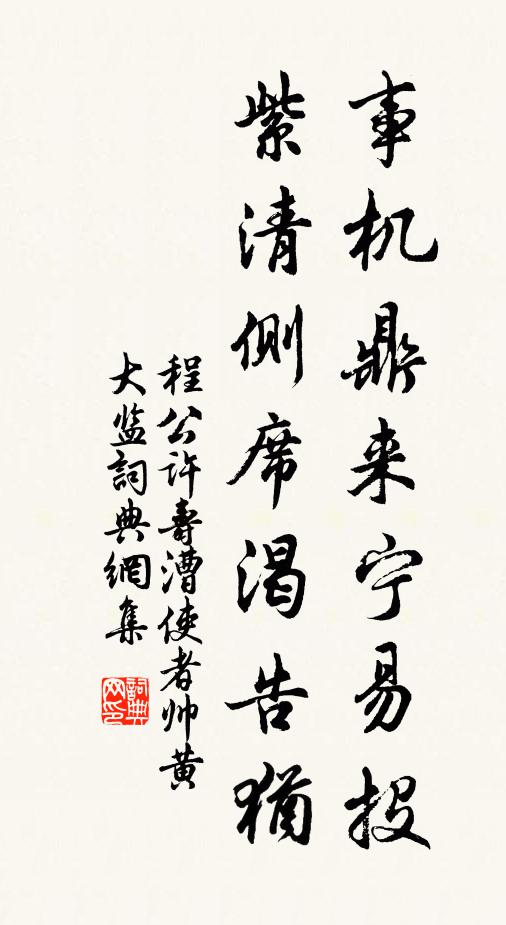 事机鼎来宁易投
紫清侧席渴告猶
程公许壽漕使者帅黄
大监詞典網集
詞典
网印